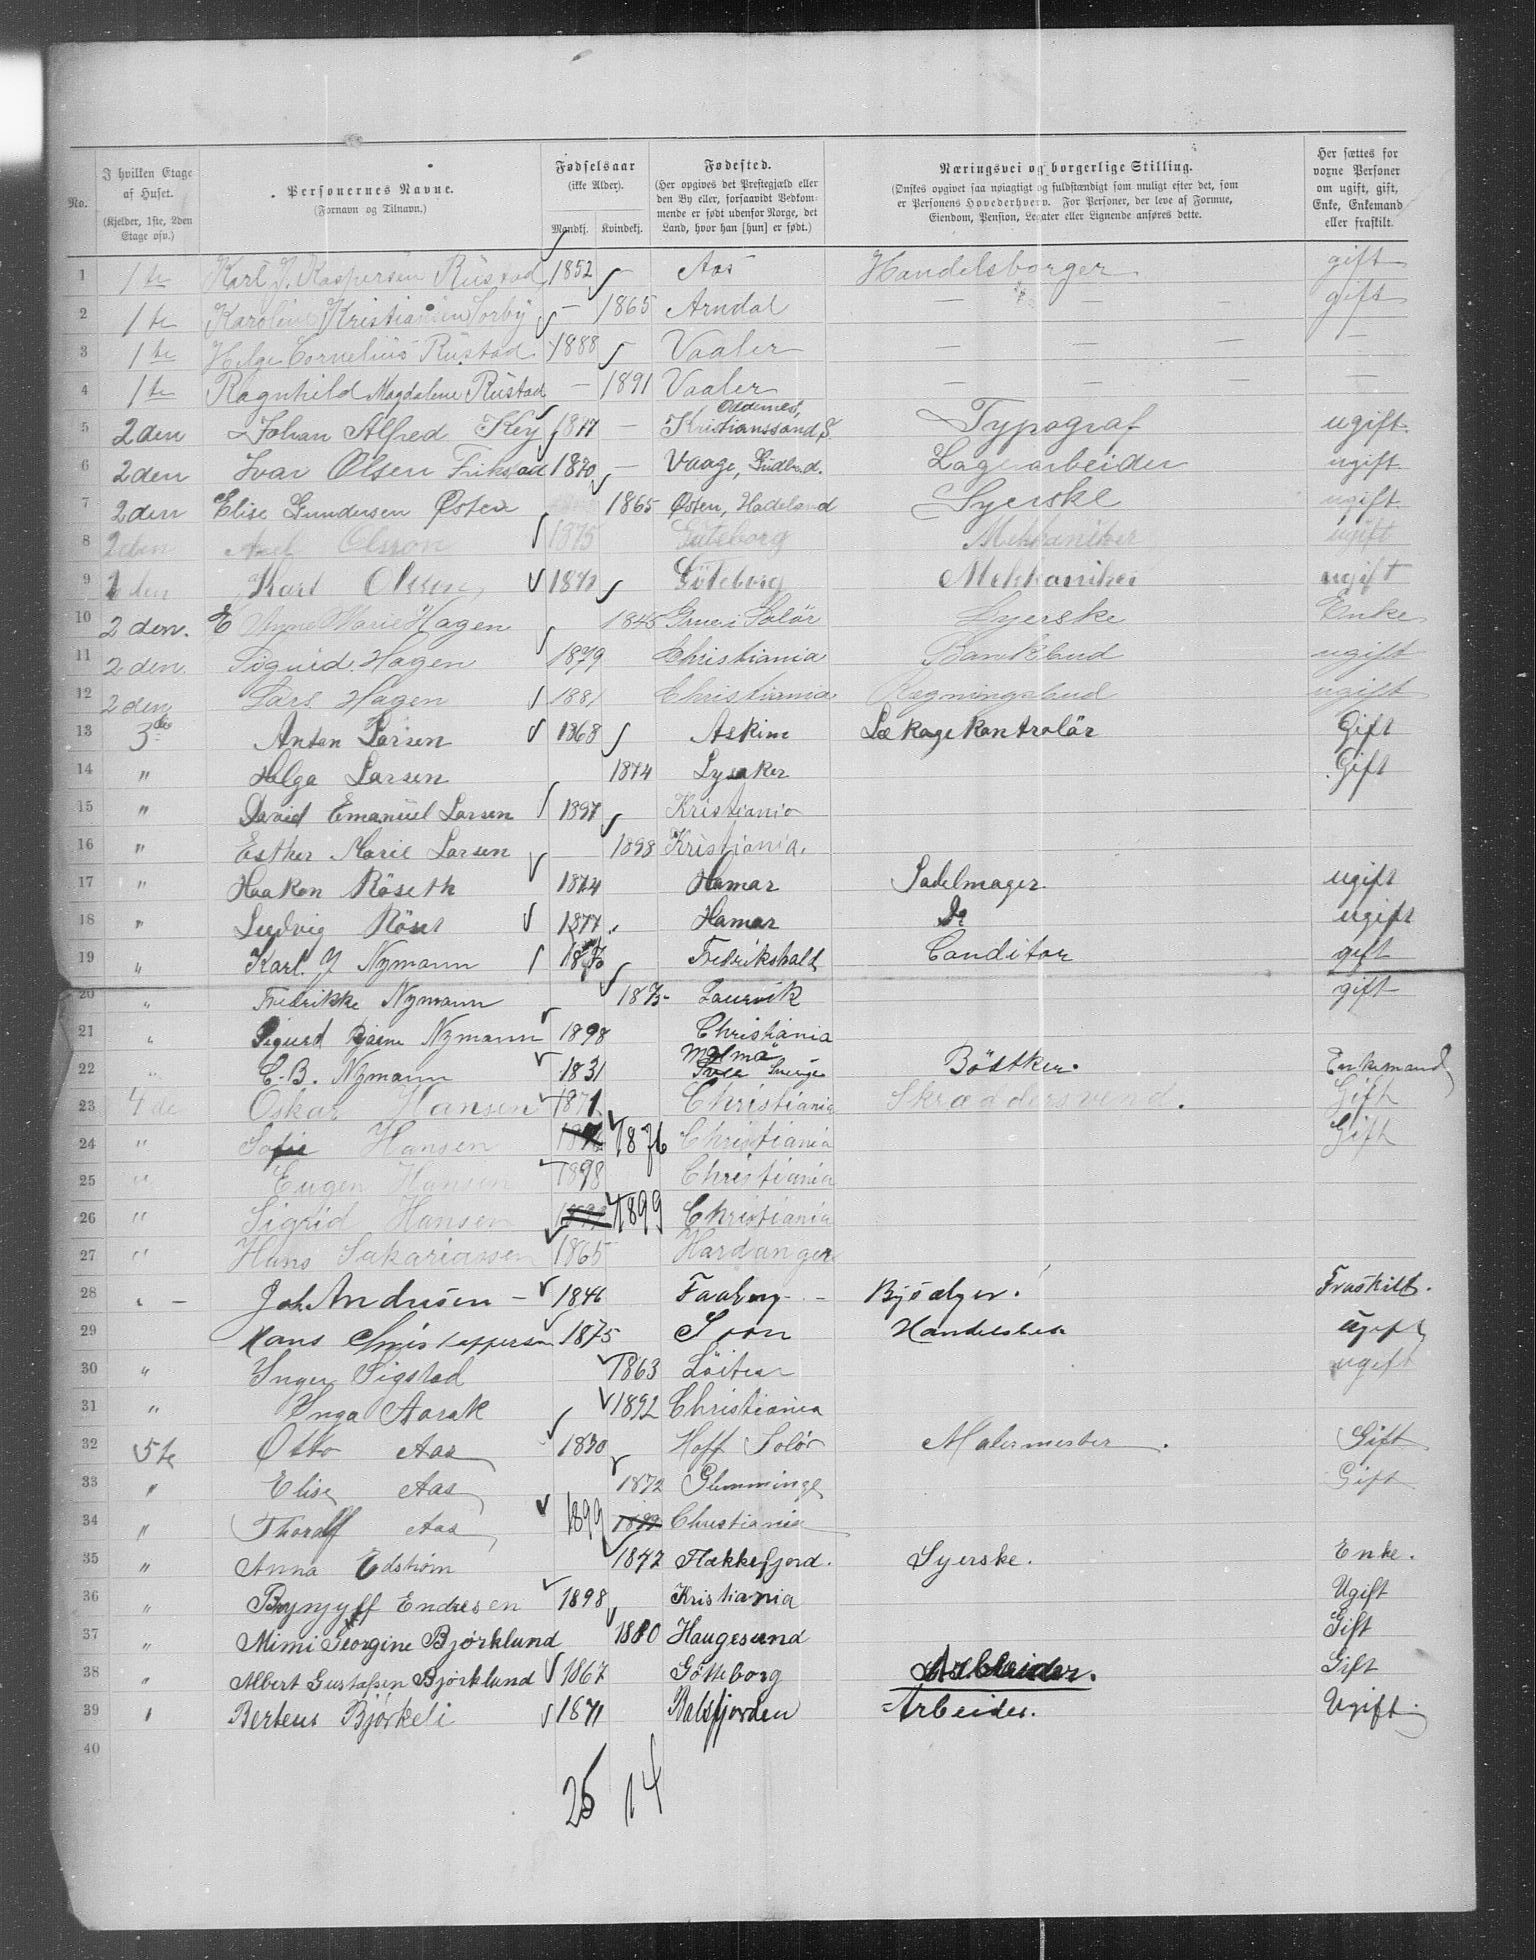 No. | I hvilken Etage af Huset. (Kjelder, 1ste, 2den Etage osv.) | Personernes Navne. (Fornavn og Tilnavn.) | Fødselsaar (ikke Alder). Mandkj. Kvindekj. | Fødested. (Her opgives det Prestegjæld eller den By eller, forsaavidt Vedkommende er født udenfor Norge, det Land, hvor han [hun] er født.) | Næringsvei og borgerlige Stilling. (Ønskes opgivet saa nøiagtigt og fuldstændigt som muligt efter det, som er Personens Hovederhverv. For Personer, der leve af Formue, Eiendom, Pension, Legater eller Lignende anføres dette. | Her sættes for voxne Personer om ugift, gift, Enke, Enkemand eller fraskilt.
1 1te Karl J. Kaspersen Rustad 1852 Aas Handelsborger gift
2 1te Karoline Kristiansen Sorby — 1865 Arndal — — — gift
3 1te Helge Cornelius Rustad 1888 Vaaler — — — —
4 1te Ragnhild Magdalene Rustad — 1891 Vaaler — — — —
5 2den Johan Alfred Key 1877 — Oddernes, Kristianssand S. Typograf ugift.
6 2den Ivar Olsen 1870 — Vaage, Gudbrd. Lagerarbeider ugift
7 2den Elise Gundersen Østen 1865 Østen, Hadeland Syerske ugift
8 2den Axel Olsson 1875 Göteborg Mekkaniker ugift
9 2den Karl Olsson 1872 Göteborg Mekkaniker ugift
10 2den. E Anne Marie Hagen 1845 Grue i Solör Syerske Enke
11 2den. Sigurd Hagen 1879 Christiania Bankbud ugift
12 2den Lars Hagen 1881 Christiania Regningsbud ugift
13 3de Anton Larsen 1868 Askim Lækagekontrolör Gift
14 " Helga Larsen 1874 Lysaker Gift
15 " David Emanuel Larsen 1897 Kristiania
16 " Esther Marie Larsen 1898 Kristiania.
17 " Haakon Röseth 1874 Hamar Sadelmager ugift
18 " Ludvig Röset 1877 Hamar Do ugift
19 " Karl. J Nymann 1870 Fredrikshald Conditor gift
20 " Fredrikke Nymann 1875 Laurvik gift
21 " Sigurd Bjarne Nymann 1898 Christiania
22 " C. B. Nymann 1831 Malmø Sverige Bödtker. Enkemand
23 4de Oskar Hansen 1871 Christiania Skræddersvend. Gift
24 " Sofie Hansen 1876 Christiania Gift
25 " Eugen Hansen 1898 Christiania
26 " Sigrid Hansen 1899 Christiania
27 " Hans Sakariassen 1865 Hardanger
28 " — Joh. Andresen — 1846 Faaberg — Bjsælger. Fraskilt.
29 Hans Christoppersen 1875 Soon ugift
30 " Inger Sigstad 1863 Löiten ugift
31 " Inga Aarak 1892 Christiania
32 5te Otto Aas 1830 Hoff Solör Malermester. Gift
33 " Elise Aas 1872 Glemminge Gift
34 " Thoralf Aas 1899 Christiania
35 " Anna Edström 1842 Flækkefjord. Syerske. Enke.
36 " Brynjulf Endresen 1898 Kristiania Ugift
37 " Mimi Georgine Bjørklund 1880 Haugesund Gift
38 " Albert Gustafsen Bjørklund 1867 Götteborg Arbeider. Gift
39 " Berteus Bjørkeli 1871 Balsfjorden Arbeider. Ugift.
40
25 14